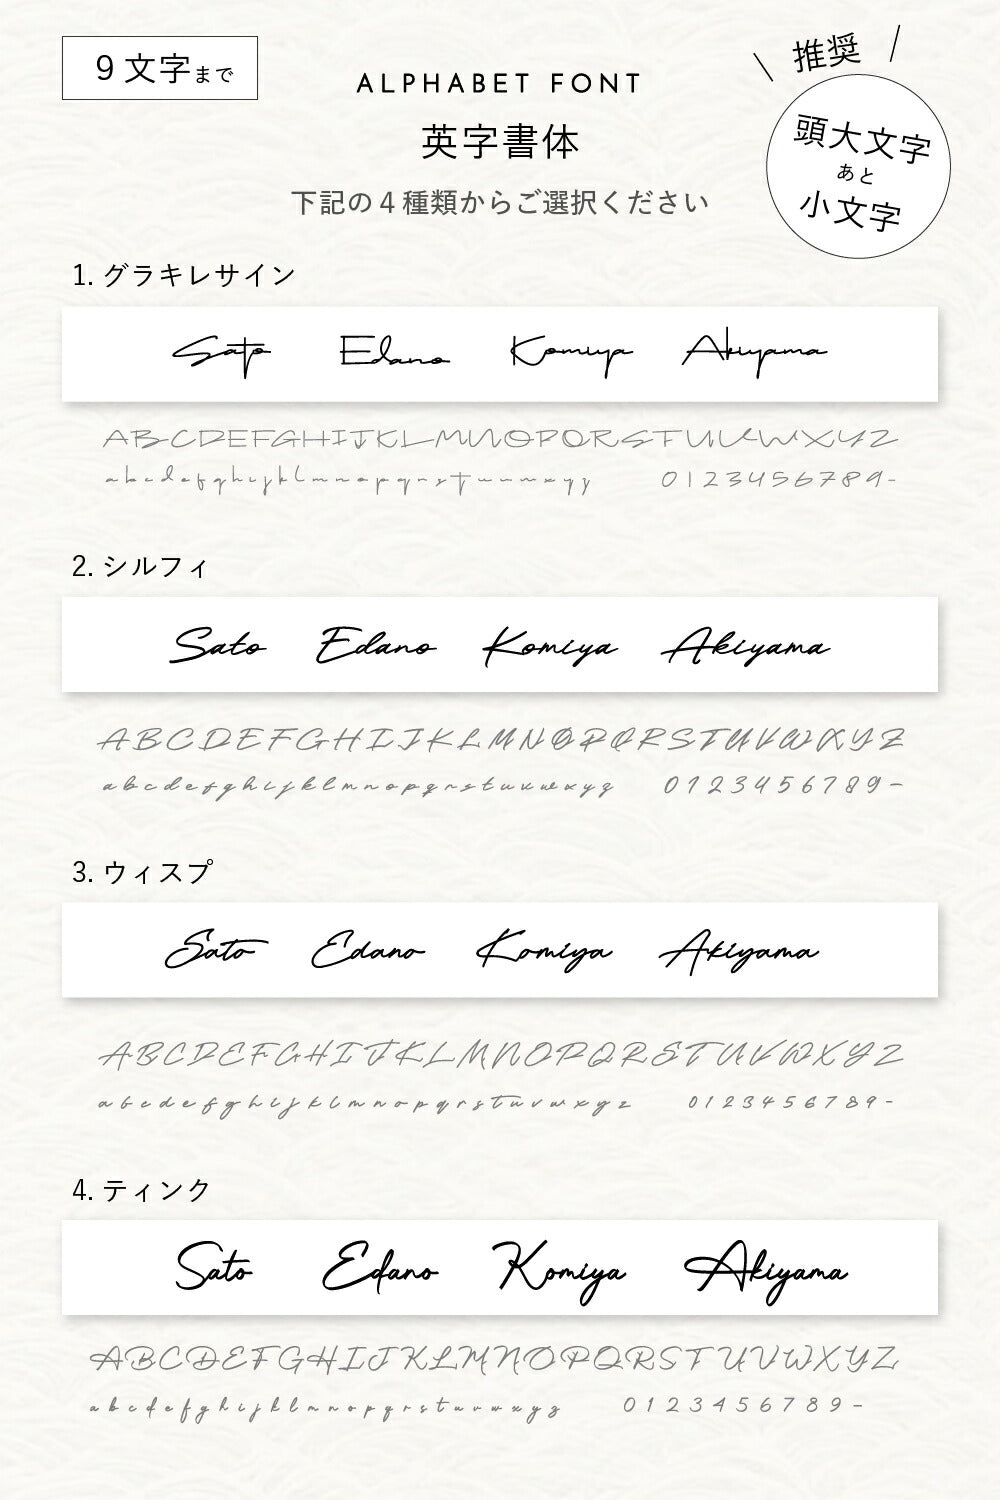 9文字まで
ALPHABET FONT
英字書体
下記の4種類からご選択ください
推奨
頭大文字
あと
小文字
1. グラキレサイン
Sato Edano Komiya Akiyama
ABCDEFGHIJKLMNOPQRSTUVWXYZ
abcdefghijklmnopqrstuvwxyz 0123456789-
2. シルフィ
Sato Edano Komiya Akiyama
ABCDEFGHIJKLMNOPQRSTUVWXYZ
abcdefghijklmnopqrstuvwxyz 0123456789-
3. ウィスプ
Sato Edano Komiya Akiyama
ABCDEFGHIJKLMNOPQRSTUVWXYZ
abcdefghijklmnopqrstuvwxyz 0123456789-
4. ティンク
Sato Edano Komiya Akiyama
ABCDEFGHIJKLMNOPQRSTUVWXYZ
abcdefghijklmnopqrstuvwxyz 0123456789-